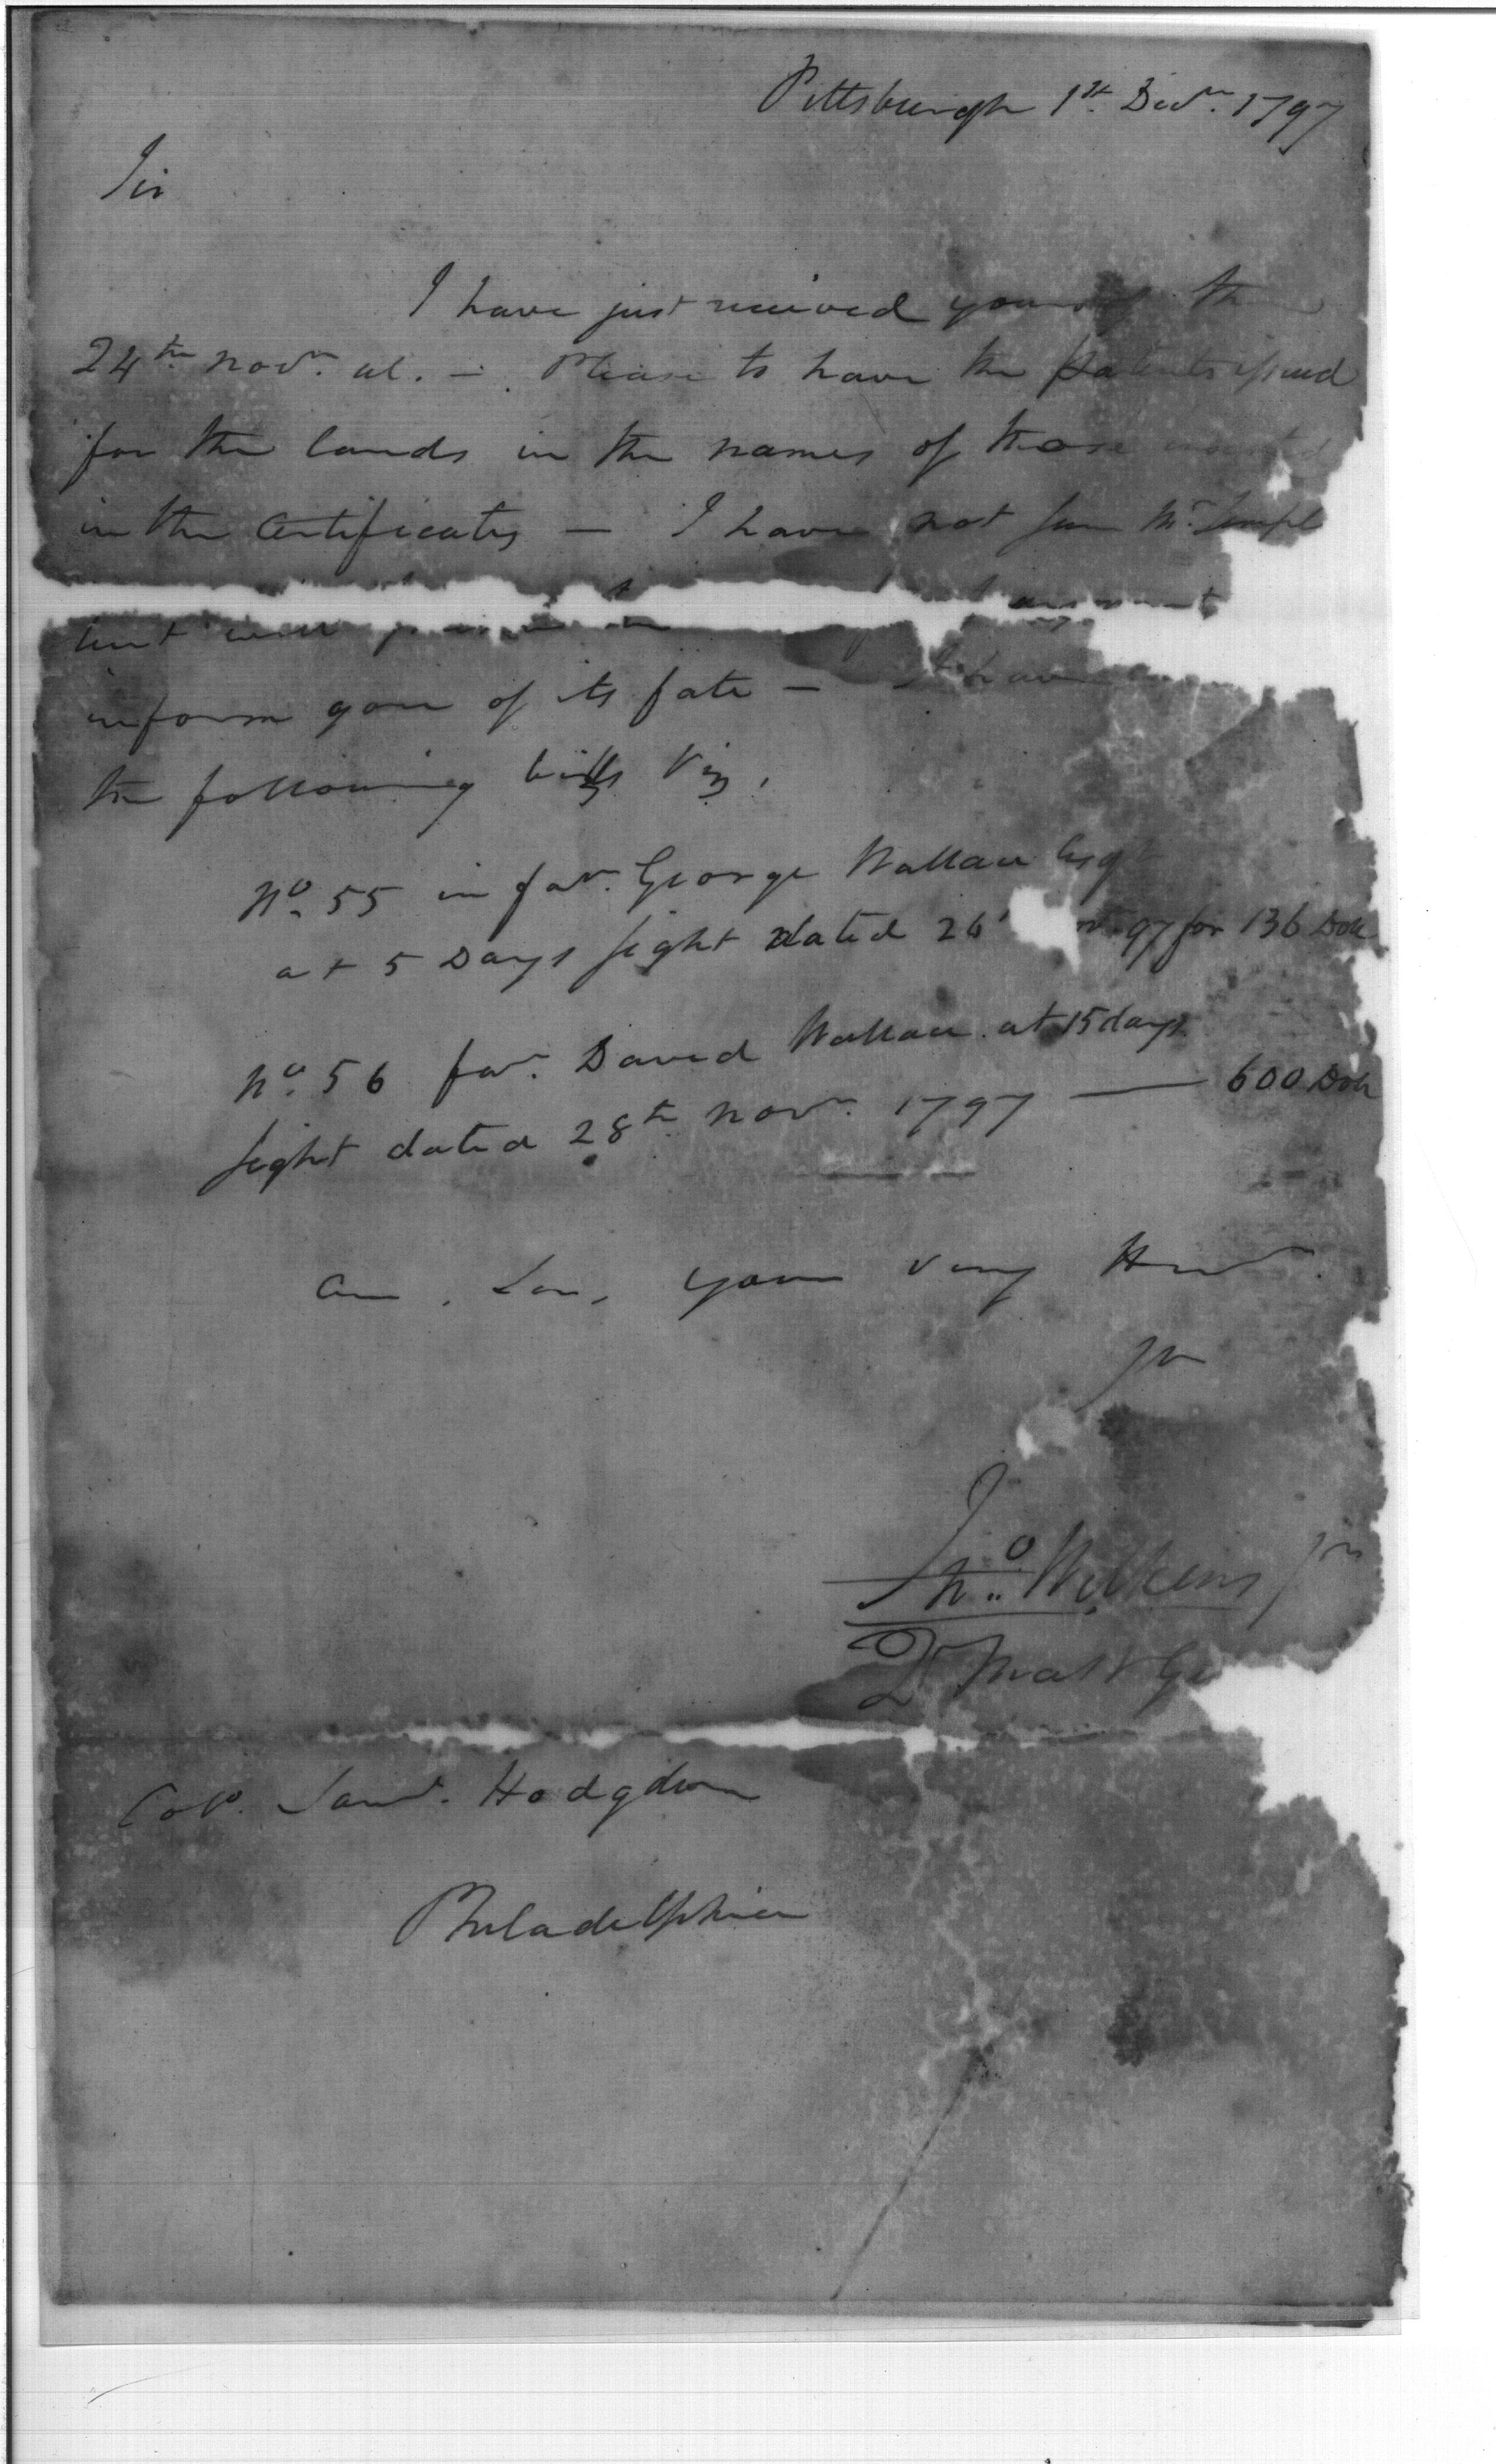 Pittsburgh 1st. Decr. 1797
Sir
I have just received yours of the
24th Novr. ul. — Please to have the patents issued
for the lands in the names of those
in the Certificates — I have not seen Mr.
but will
inform you of its fate — I have
the following bills Viz,
No. 55 in favr. George Wallace Esqr
at 5 Days sight dated 26 97 for 136 Dolls
No. 56 favr. David Wallace at 15 days
sight dated 28th Novr. 1797 — 600 Dolls
am, Sir, your very Hume.
Sr
Jno. Wilkins Jr
Qr Mastr Ge
Colo. Saml. Hodgdon
Philadelphia